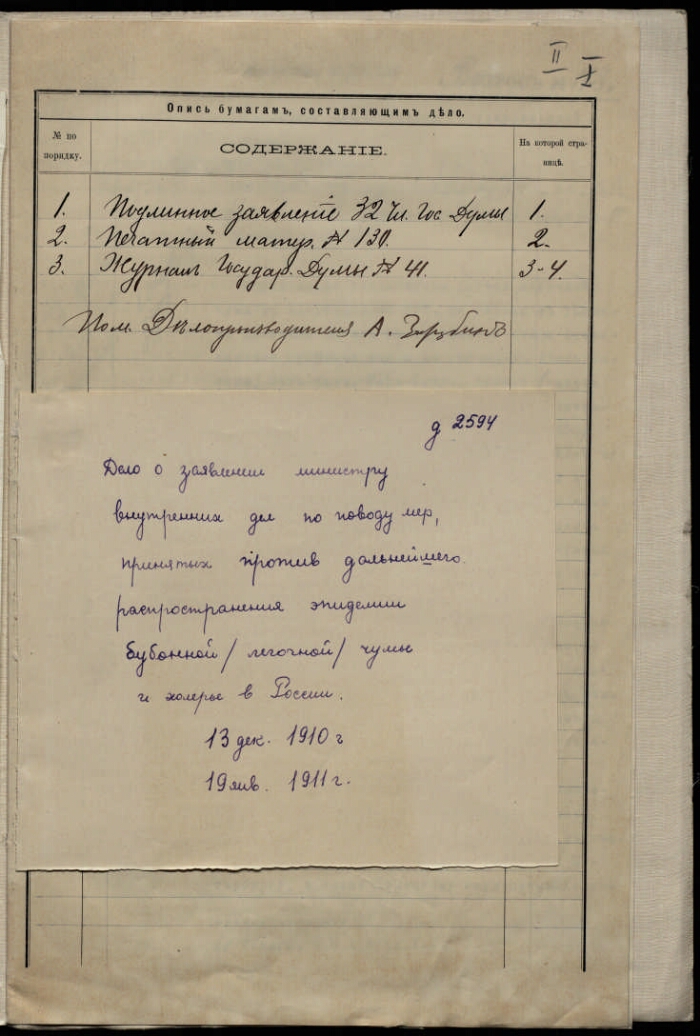 II I
Опись бумагамъ, составляющимъ дѣло.
№ по порядку.
СОДЕРЖАНІЕ.
На которой стра-
ницѣ.
1. Подлинное заявленіе 32 Чл. Гос Думы 1.
2. Печатный матер. № 130. 2.
3. Журналъ Государ. Думы № 41. 3-4.
Пом. Дѣлопроизводителя А. Зарубинъ
д 2594
Дело о заявлении министру
внутренних дел по поводу мер,
принятых против дальнейшего
распространения эпидемии
бубонной / легочной / чумы
и холеры в России.
13 дек. 1910 г
19 янв. 1911 г.